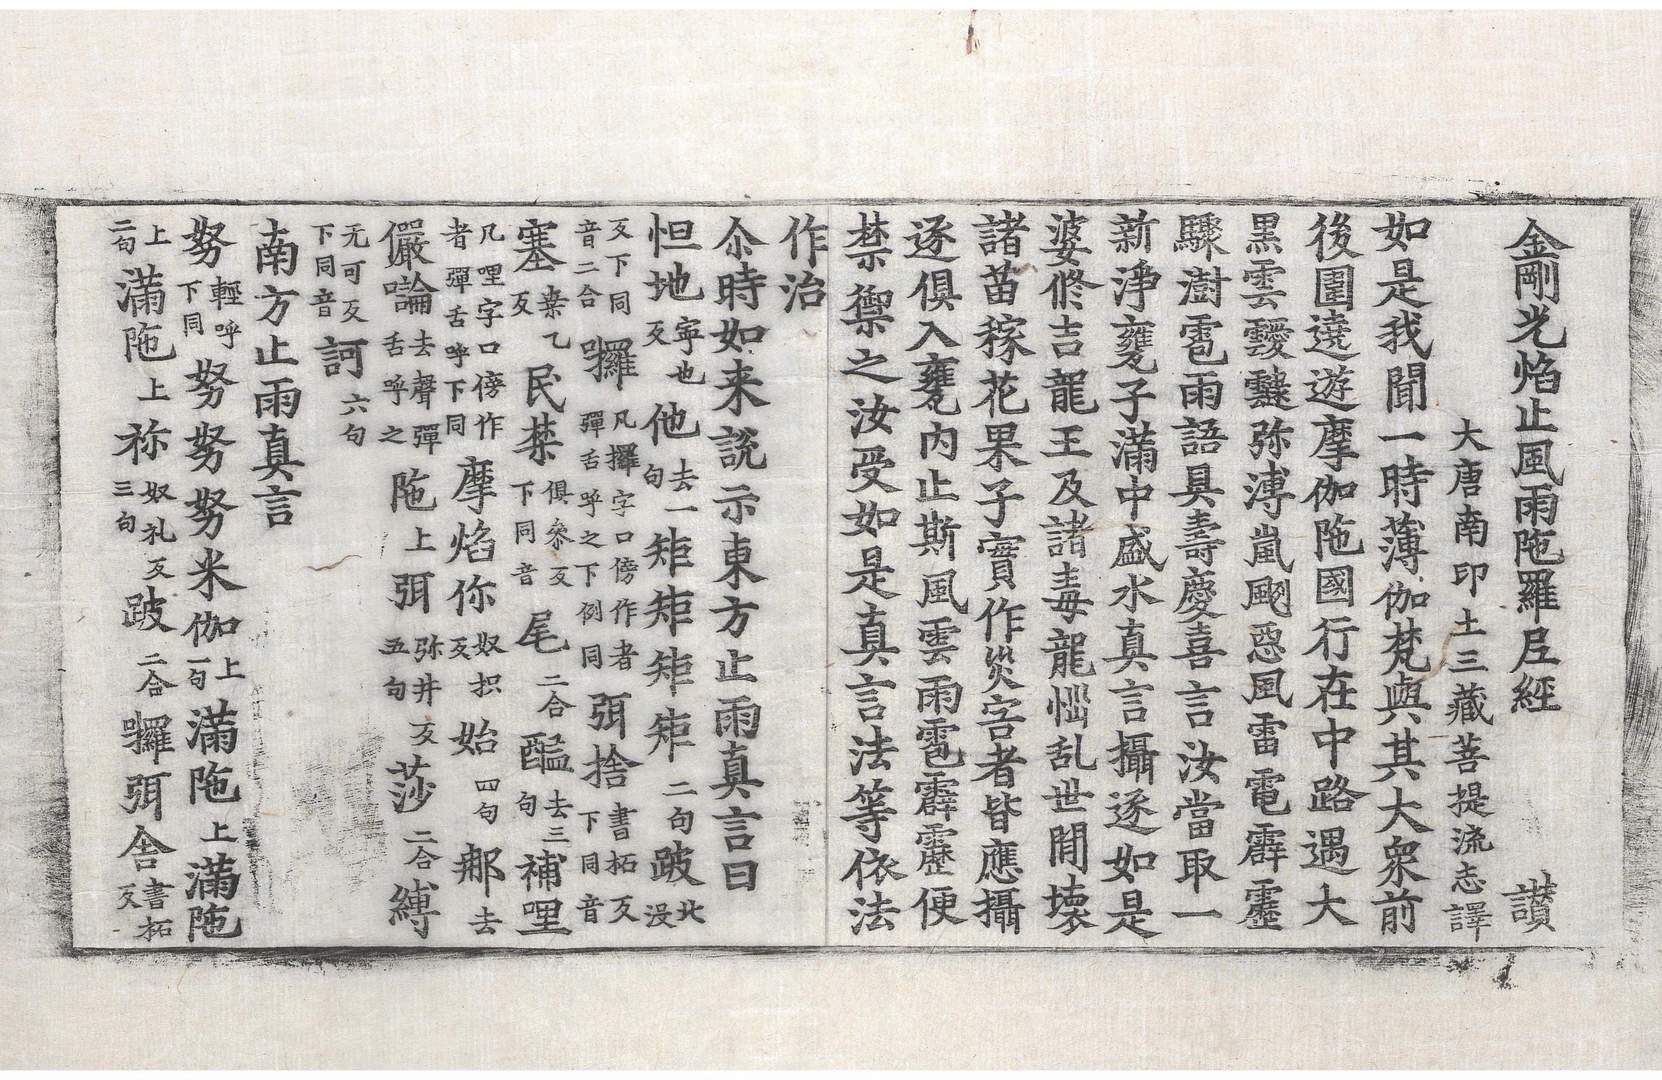 金剛光焰止風雨陁羅尼經 讃
大唐南印土三藏菩提流志譯
如是我聞一時薄伽梵與其大衆前
後圍遶遊摩伽陁國行在中路遇大
黒雲雲靉靆弥溥嵐颲惡風雷電霹靂
驟澍雹雨語具壽慶喜言汝當取一
新淨瓮子滿中盛水真言攝逐如是
婆修吉龍王及諸毒龍惱乱世間壊
諸苗稼花果子實作災害者皆應攝
逐俱入瓮內止斯風雲雨雹霹靂便
禁禦之汝受如是真言法等依法
作治
尒時如来說示東方止雨真言曰
怛地寧也反他去一句矩矩矩矩二句跛北没
反下同音二合囉凡囉字口傍作者彈舌呼之下例同弭捨書柘反下同音
塞桒乙反民禁俱叅反下同音尾二合醯去三句補哩
凡哩字口傍作者彈舌呼下同摩焰你奴枳反始四句郍去
儼㗍去聲彈舌呼之陁上弭弥井反五句莎二合縛
无可反下同音訶六句
南方止雨真言
努輕呼下同努努努米伽上一句滿陁上滿陁
上二句滿陁上祢奴礼反三句跛二合囉弭舍書柘反